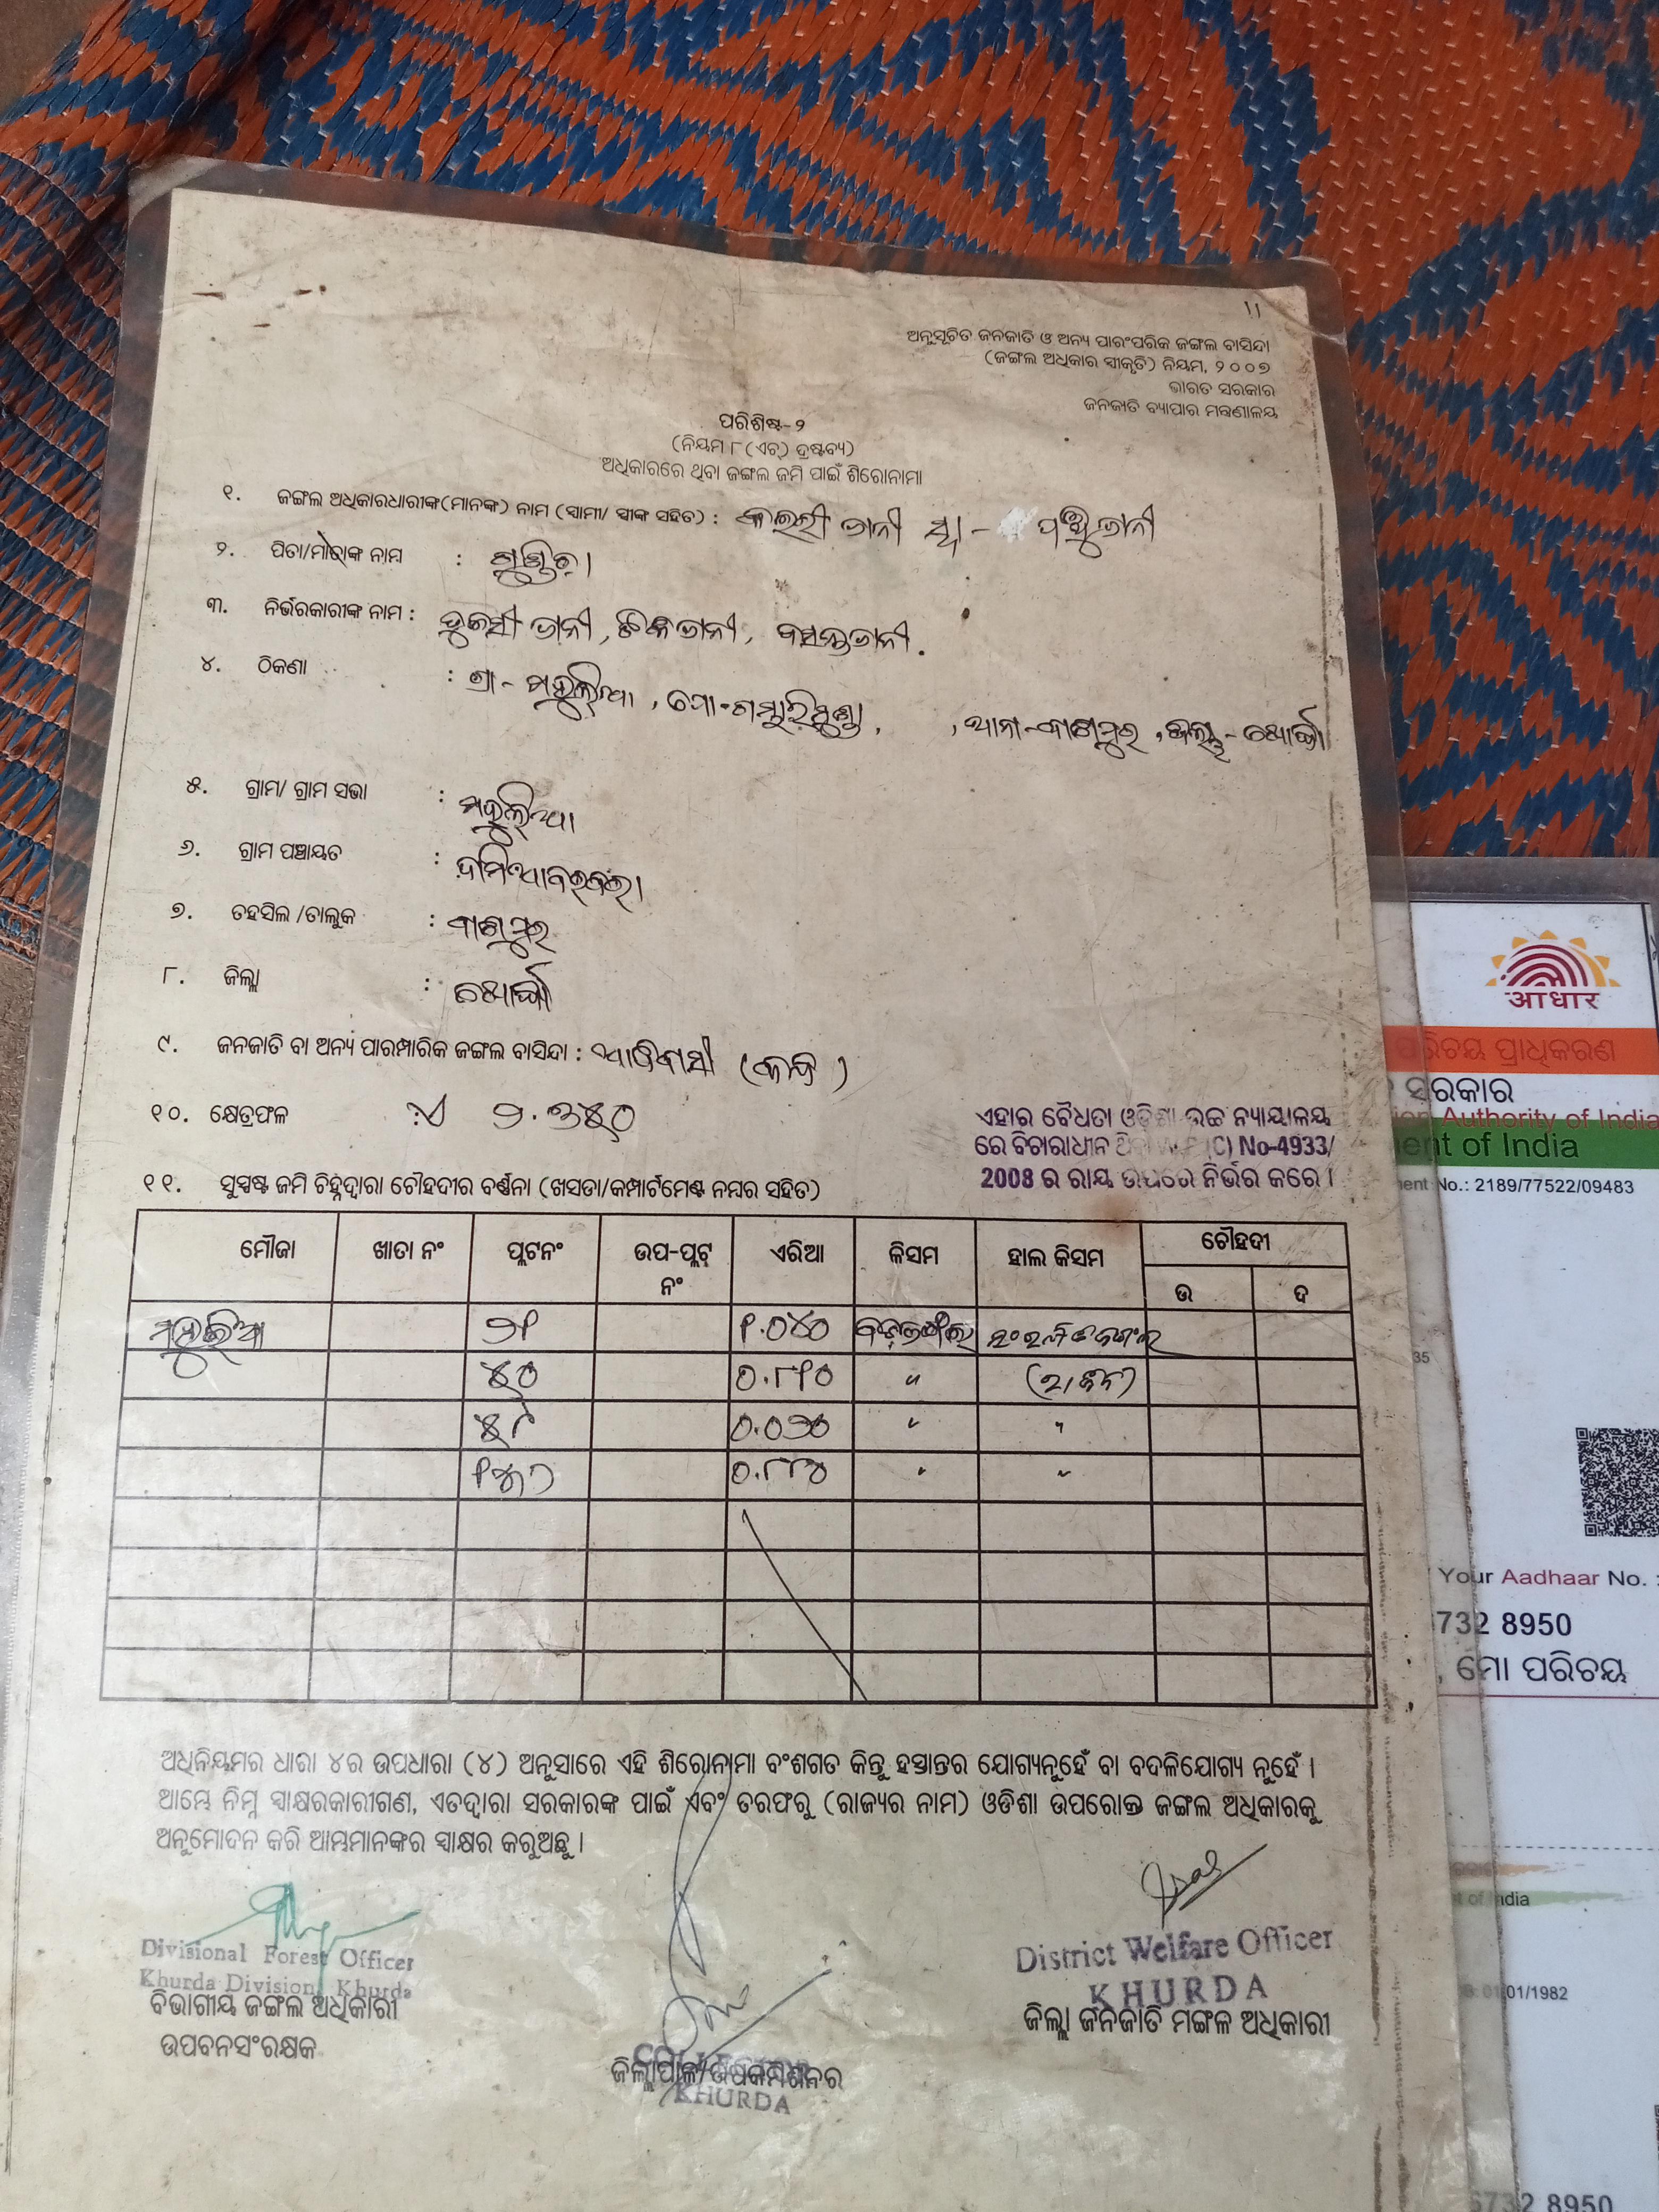 ୧।
ଅନୁସୂଚିତ ଜନଜାତି ଓ ଅନ୍ୟ ପାରଂପରିକ ଜଙ୍ଗଲ ବାସିନ୍ଦା
(ଜଙ୍ଗଲ ଅଧିକାର ସ୍ୱୀକୃତି) ନିୟମ, ୨୦୦୭
ଭାରତ ସରକାର
ଜନଜାତି ବ୍ୟାପାର ମନ୍ତ୍ରଣାଳୟ
ପରିଶିଷ୍ଟ-୨
(ନିୟମ ୮ (ଏଚ୍) ଦ୍ରଷ୍ଟବ୍ୟ)
ଅଧିକାରରେ ଥିବା ଜଙ୍ଗଲ ଜମି ପାଇଁ ଶିରୋନାମା
୧. ଜଙ୍ଗଲ ଅଧିକାରଧାରୀଙ୍କ(ମାନଙ୍କ) ନାମ (ସ୍ୱାମୀ/ ସ୍ତ୍ରୀଙ୍କ ସହିତ) : ଜାନୀ ସ୍ୱା - ପଞ୍ଚୁ ଜାନୀ
୨. ପିତା/ମାତାଙ୍କ ନାମ :
୩. ନିର୍ଭରକାରୀଙ୍କ ନାମ : ଜାନୀ, ଜାନୀ, ବସନ୍ତ ଜାନୀ.
୪. ଠିକଣା : ଗ୍ରା - ମହୁଲିଆ, ପୋ - ଗମ୍ଭାରିମୁଣ୍ଡା, , ଥାନା - ବାଣପୁର, ଜିଲ୍ଲା - ଖୋର୍ଦ୍ଧା
୫. ଗ୍ରାମ/ ଗ୍ରାମ ସଭା : ମହୁଲିଆ
୬. ଗ୍ରାମ ପଞ୍ଚାୟତ : ଦାମିଆବରବରା
୭. ତହସିଲ /ତାଲୁକ : ବାଣପୁର
୮. ଜିଲ୍ଲା : ଖୋର୍ଦ୍ଧା
୯. ଜନଜାତି ବା ଅନ୍ୟ ପାରମ୍ପାରିକ ଜଙ୍ଗଲ ବାସିନ୍ଦା : ଆଦିବାସୀ (କନ୍ଧ)
୧୦. କ୍ଷେତ୍ରଫଳ ଏ ୨.୬୫୦
ଏହାର ବୈଧତା ଓଡ଼ିଶା ଉଚ୍ଚ ନ୍ୟାୟାଳୟ
ରେ ବିଚାରାଧୀନ (C) No-4933/
2008 ର ରାୟ ଉପରେ ନିର୍ଭର କରେ ।
୧୧. ସୁସ୍ପଷ୍ଟ ଜମି ଚିହ୍ନଦ୍ୱାରା ଚୌହଦୀର ବର୍ଣ୍ଣନା (ଖସଡା/କମ୍ପାର୍ଟମେଣ୍ଟ ନମ୍ବର ସହିତ)
ମୌଜା ଖାତା ନଂ ପ୍ଲଟନଂ ଉପ-ପ୍ଲଟ୍ ନଂ ଏରିଆ କିସମ ହାଲ କିସମ ଚୌହଦୀ
ଉ ଦ
ମହୁଲିଆ ୨୧ ୧.୦୪୦
୫୦ ୦.୮୧୦ "
୫୮ "  "
"  "
ଅଧିନିୟମର ଧାରା ୪ର ଉପଧାରା (୪) ଅନୁସାରେ ଏହି ଶିରୋନାମା ବଂଶଗତ କିନ୍ତୁ ହସ୍ତାନ୍ତର ଯୋଗ୍ୟନୁହେଁ ବା ବଦଳିଯୋଗ୍ୟ ନୁହେଁ ।
ଆମ୍ଭେ ନିମ୍ନ ସ୍ୱାକ୍ଷରକାରୀଗଣ, ଏତଦ୍ୱାରା ସରକାରଙ୍କ ପାଇଁ ଏବଂ ତରଫରୁ (ରାଜ୍ୟର ନାମ) ଓଡିଶା ଉପରୋକ୍ତ ଜଙ୍ଗଲ ଅଧିକାରକୁ
ଅନୁମୋଦନ କରି ଆମ୍ଭମାନଙ୍କର ସ୍ୱାକ୍ଷର କରୁଅଛୁ ।
Divisional Forest Officer
Khurda Division, Khurda
ବିଭାଗୀୟ ଜଙ୍ଗଲ ଅଧିକାରୀ
ଉପବନସଂରକ୍ଷକ
ଜିଲ୍ଲାପାଳ/ଉପକମିଶନର
KHURDA
District Welfare Officer
KHURDA
ଜିଲ୍ଲା ଜନଜାତି ମଙ୍ଗଳ ଅଧିକାରୀ
आधार
ପରିଚୟ ପ୍ରାଧିକରଣ
ସରକାର
Authority of India
of India
No.: 2189/77522/09483
35
Your Aadhaar No. :
732 8950
, ମୋ ପରିଚୟ
of India
01/01/1982
6732 8950